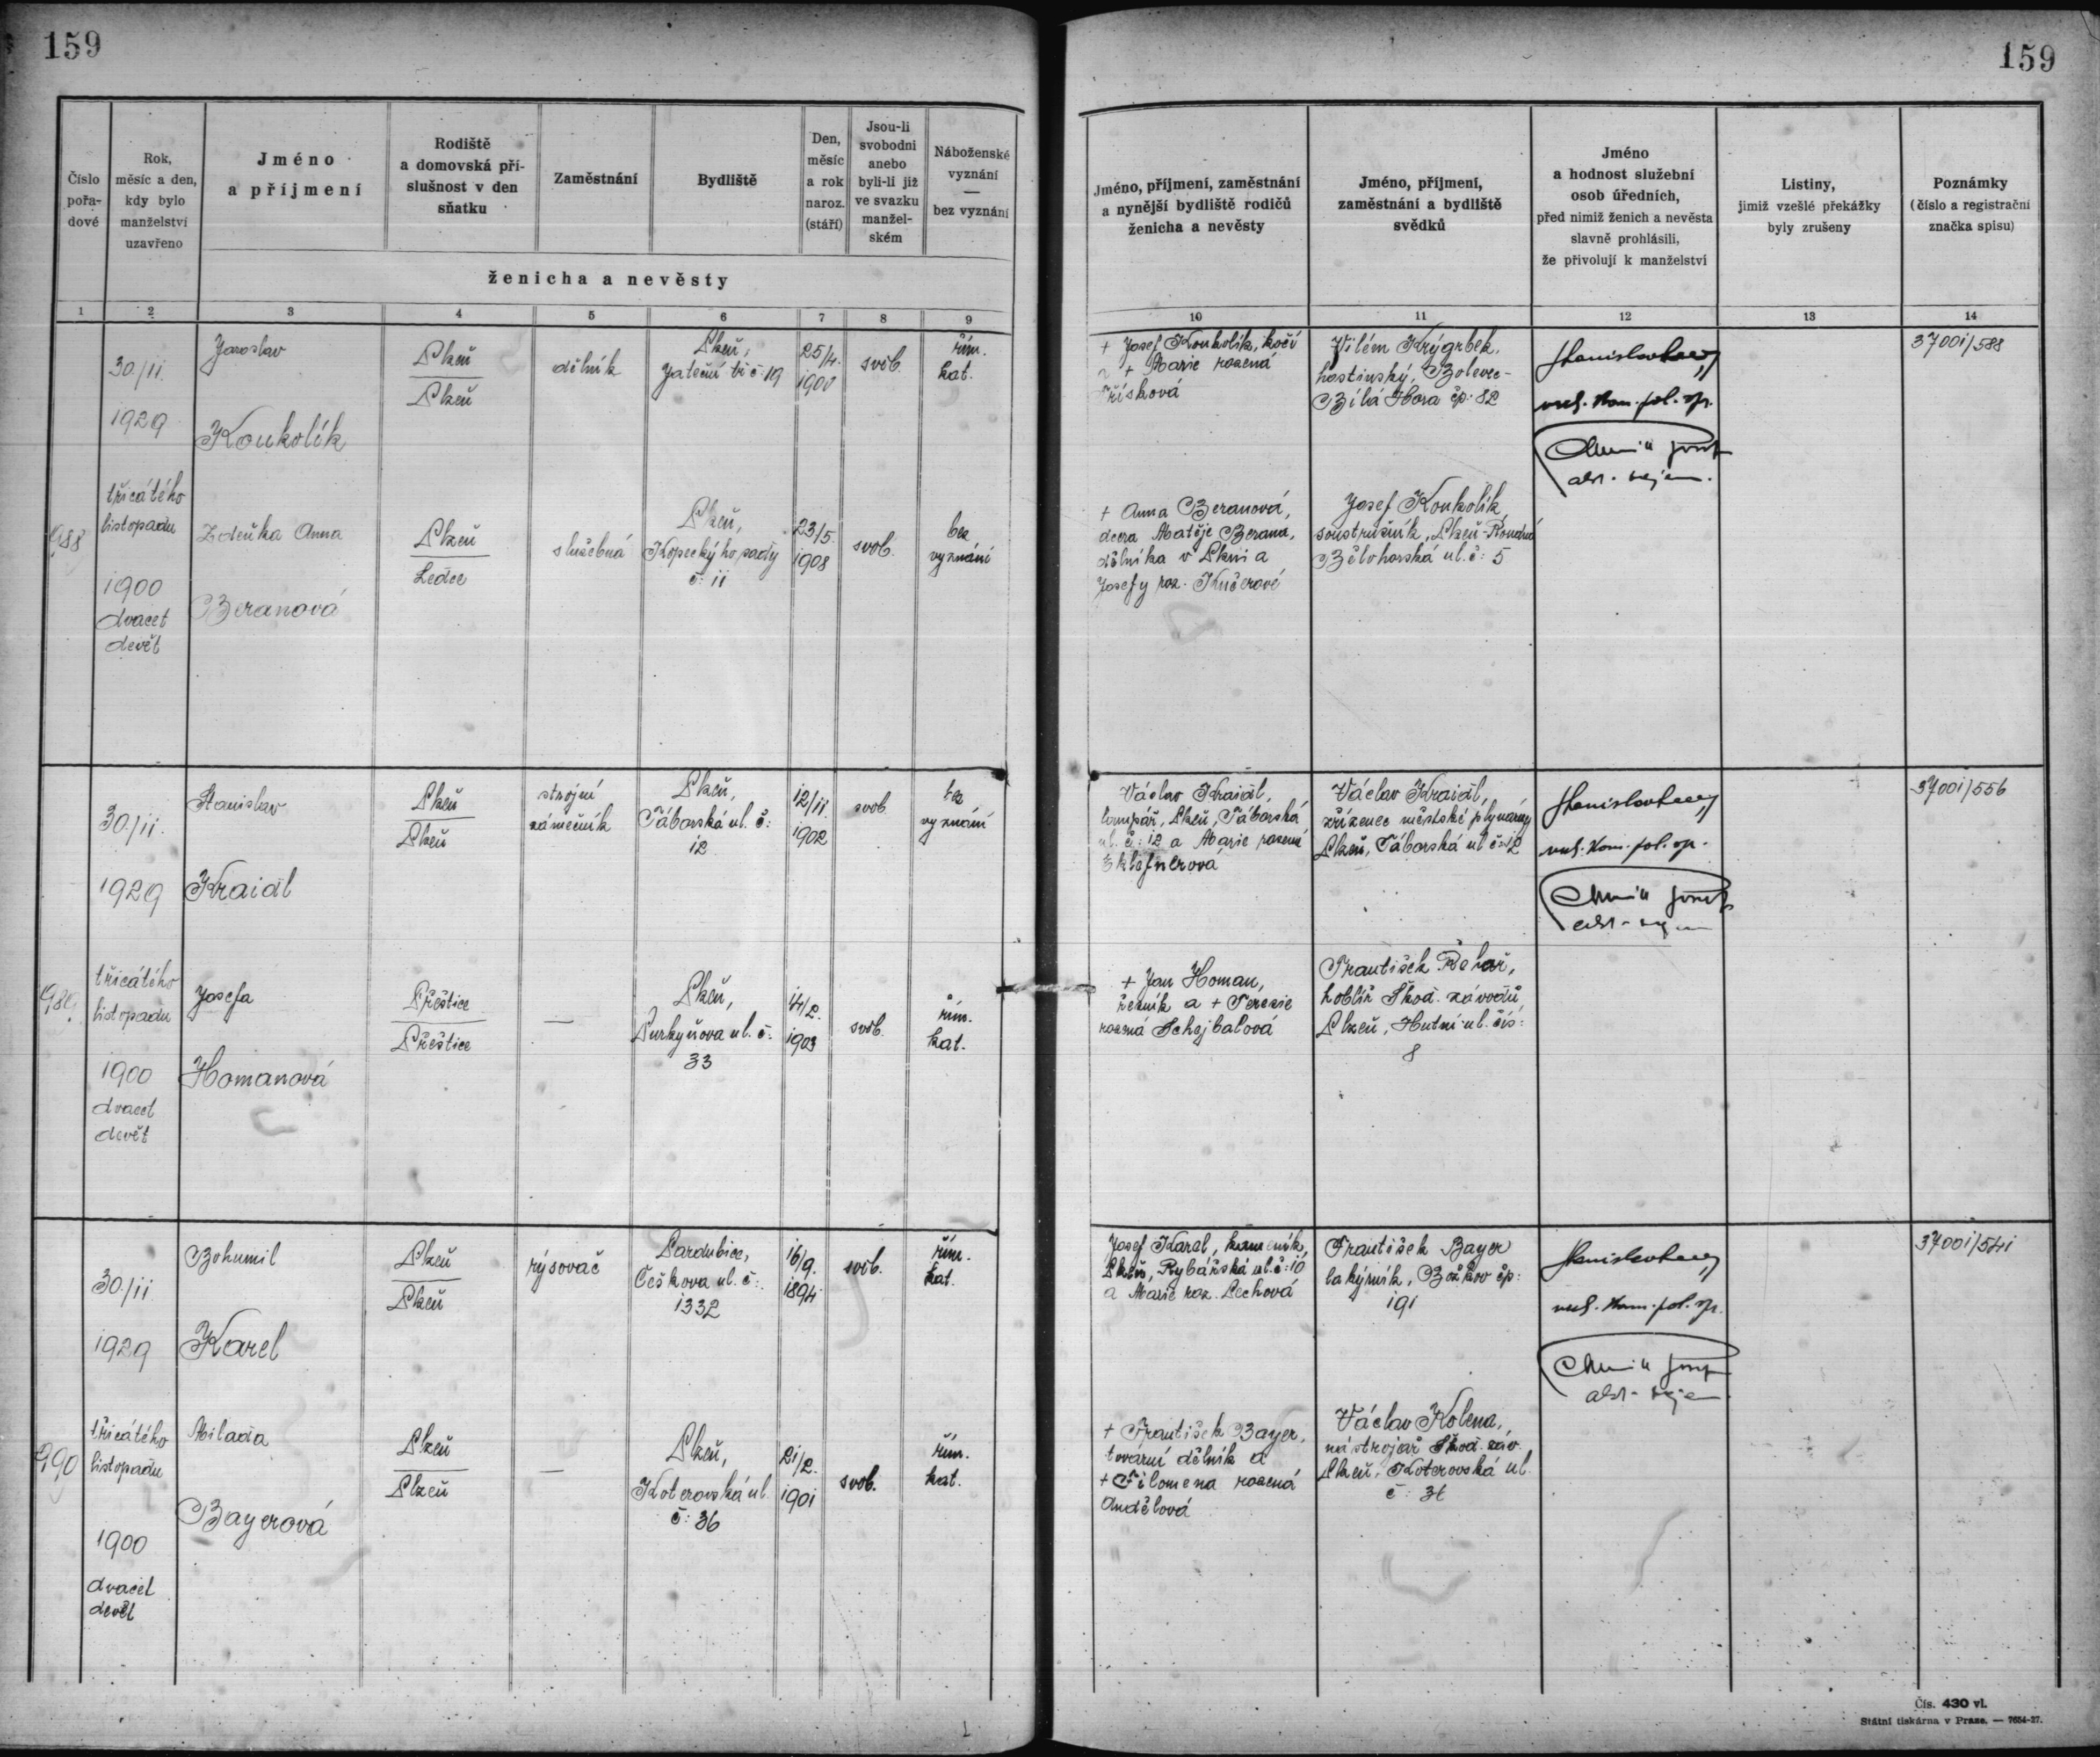 159
159
Číslo
pořa-
dové
Rok,
měsíc a den,
kdy bylo
manželství
uzavřeno
Jméno
a příjmení
Rodiště
a domovská pří-
slušnost v den
sňatku
Zaměstnání
Bydliště
Den,
měsíc
a rok
naroz.
(stáří)
Jsou-li
svobodni
anebo
byli-li již
ve svazku
manžel-
ském
Náboženské
vyznání
—
bez vyznání
ženicha a nevěsty
Jméno, příjmení, zaměstnání
a nynější bydliště rodičů
ženicha a nevěsty
Jméno, příjmení,
zaměstnání a bydliště
svědků
Jméno
a hodnost služební
osob úředních,
před nimiž ženich a nevěsta
slavně prohlásili,
že přivolují k manželství
Listiny,
jimiž vzešlé překážky
byly zrušeny
Poznámky
(číslo a registrační
značka spisu)
1 2 3 4 5 6 7 8 9 10 11 12 13 14
988
30/11
1929
třicátého
listopadu
1900
dvacet
devět
Jaroslav
Koukolík
Plzeň
Plzeň
dělník
Plzeň,
Jateční tř č: 19
25/4.
1900
svob.
řím.
kat.
+ Josef Koukolík, kočí
a + Marie rozená
Vilém Krýgrbek,
hostinský, Bolevec-
Bílá Hora čp. 82
vrch. kom. pol. spr.
37001/588
Zdeňka Anna
Beranová
Plzeň
Ledce
služebná
Plzeň,
Kopeckýho sady
č: 11
23/5.
1908
svob.
bez
vyznání
+ Anna Beranová,
dcera Matěje Berana,
dělníka v Plzni a
Josefy roz. Kučerové
Josef Koukolík,
soustružník, Plzeň-Roudná
Bělohorská ul. č: 5
989
30/11.
1929
třicátého
listopadu
1900
dvacet
devět
Stanislav
Kraidl
Plzeň
Plzeň
strojní
zámečník
Plzeň,
Táborská ul. č:
12
12/11.
1902
svob
bez
vyznání
Václav Kraidl,
lampář, Plzeň, Táborská
ul. č: 12 a Marie rozená
Václav Kraidl,
zřízenec městské plynárny
Plzeň, Táborská ul č: 12
vrch. kom. pol. sp.
37001/556
Josefa
Homanová
Přeštice
Přeštice
—
Plzeň,
Purkyňova ul. č:
33
14/2.
1903
svob.
řím.
kat.
+ Jan Homan,
řezník a + Terezie
rozená Schejbalová
František Řehoř,
hoblíř Škod. závodů,
Plzeň, Hutní ul. čís:
8
990
30/11
1929
třicátého
listopadu
1900
dvacet
devět
Bohumil
Karel
Plzeň
Plzeň
rýsovač
Pardubice,
Češkova ul. č:
1332
16/9.
1894
svob.
řím.
kat.
Josef Karel, kameník,
Plzeň, Rybářská ul. č: 10
a Marie roz. Pechová
František Bayer
lakýrník, Božkov čp:
191
vrch. kom. pol. sp.
37001/541
Milada
Bayerová
Plzeň
Plzeň
—
Plzeň,
Koterovská ul.
č: 36
21/2.
1901
svob.
řím.
kat.
+ František Bayer,
tovární dělník a
+ Filomena rozená
Andělová
Václav Kolena,
nástrojař Škod. záv.
Plzeň, Koterovská ul.
č: 36
Čís. 430 vl.
Státní tiskárna v Praze. — 7654-27.